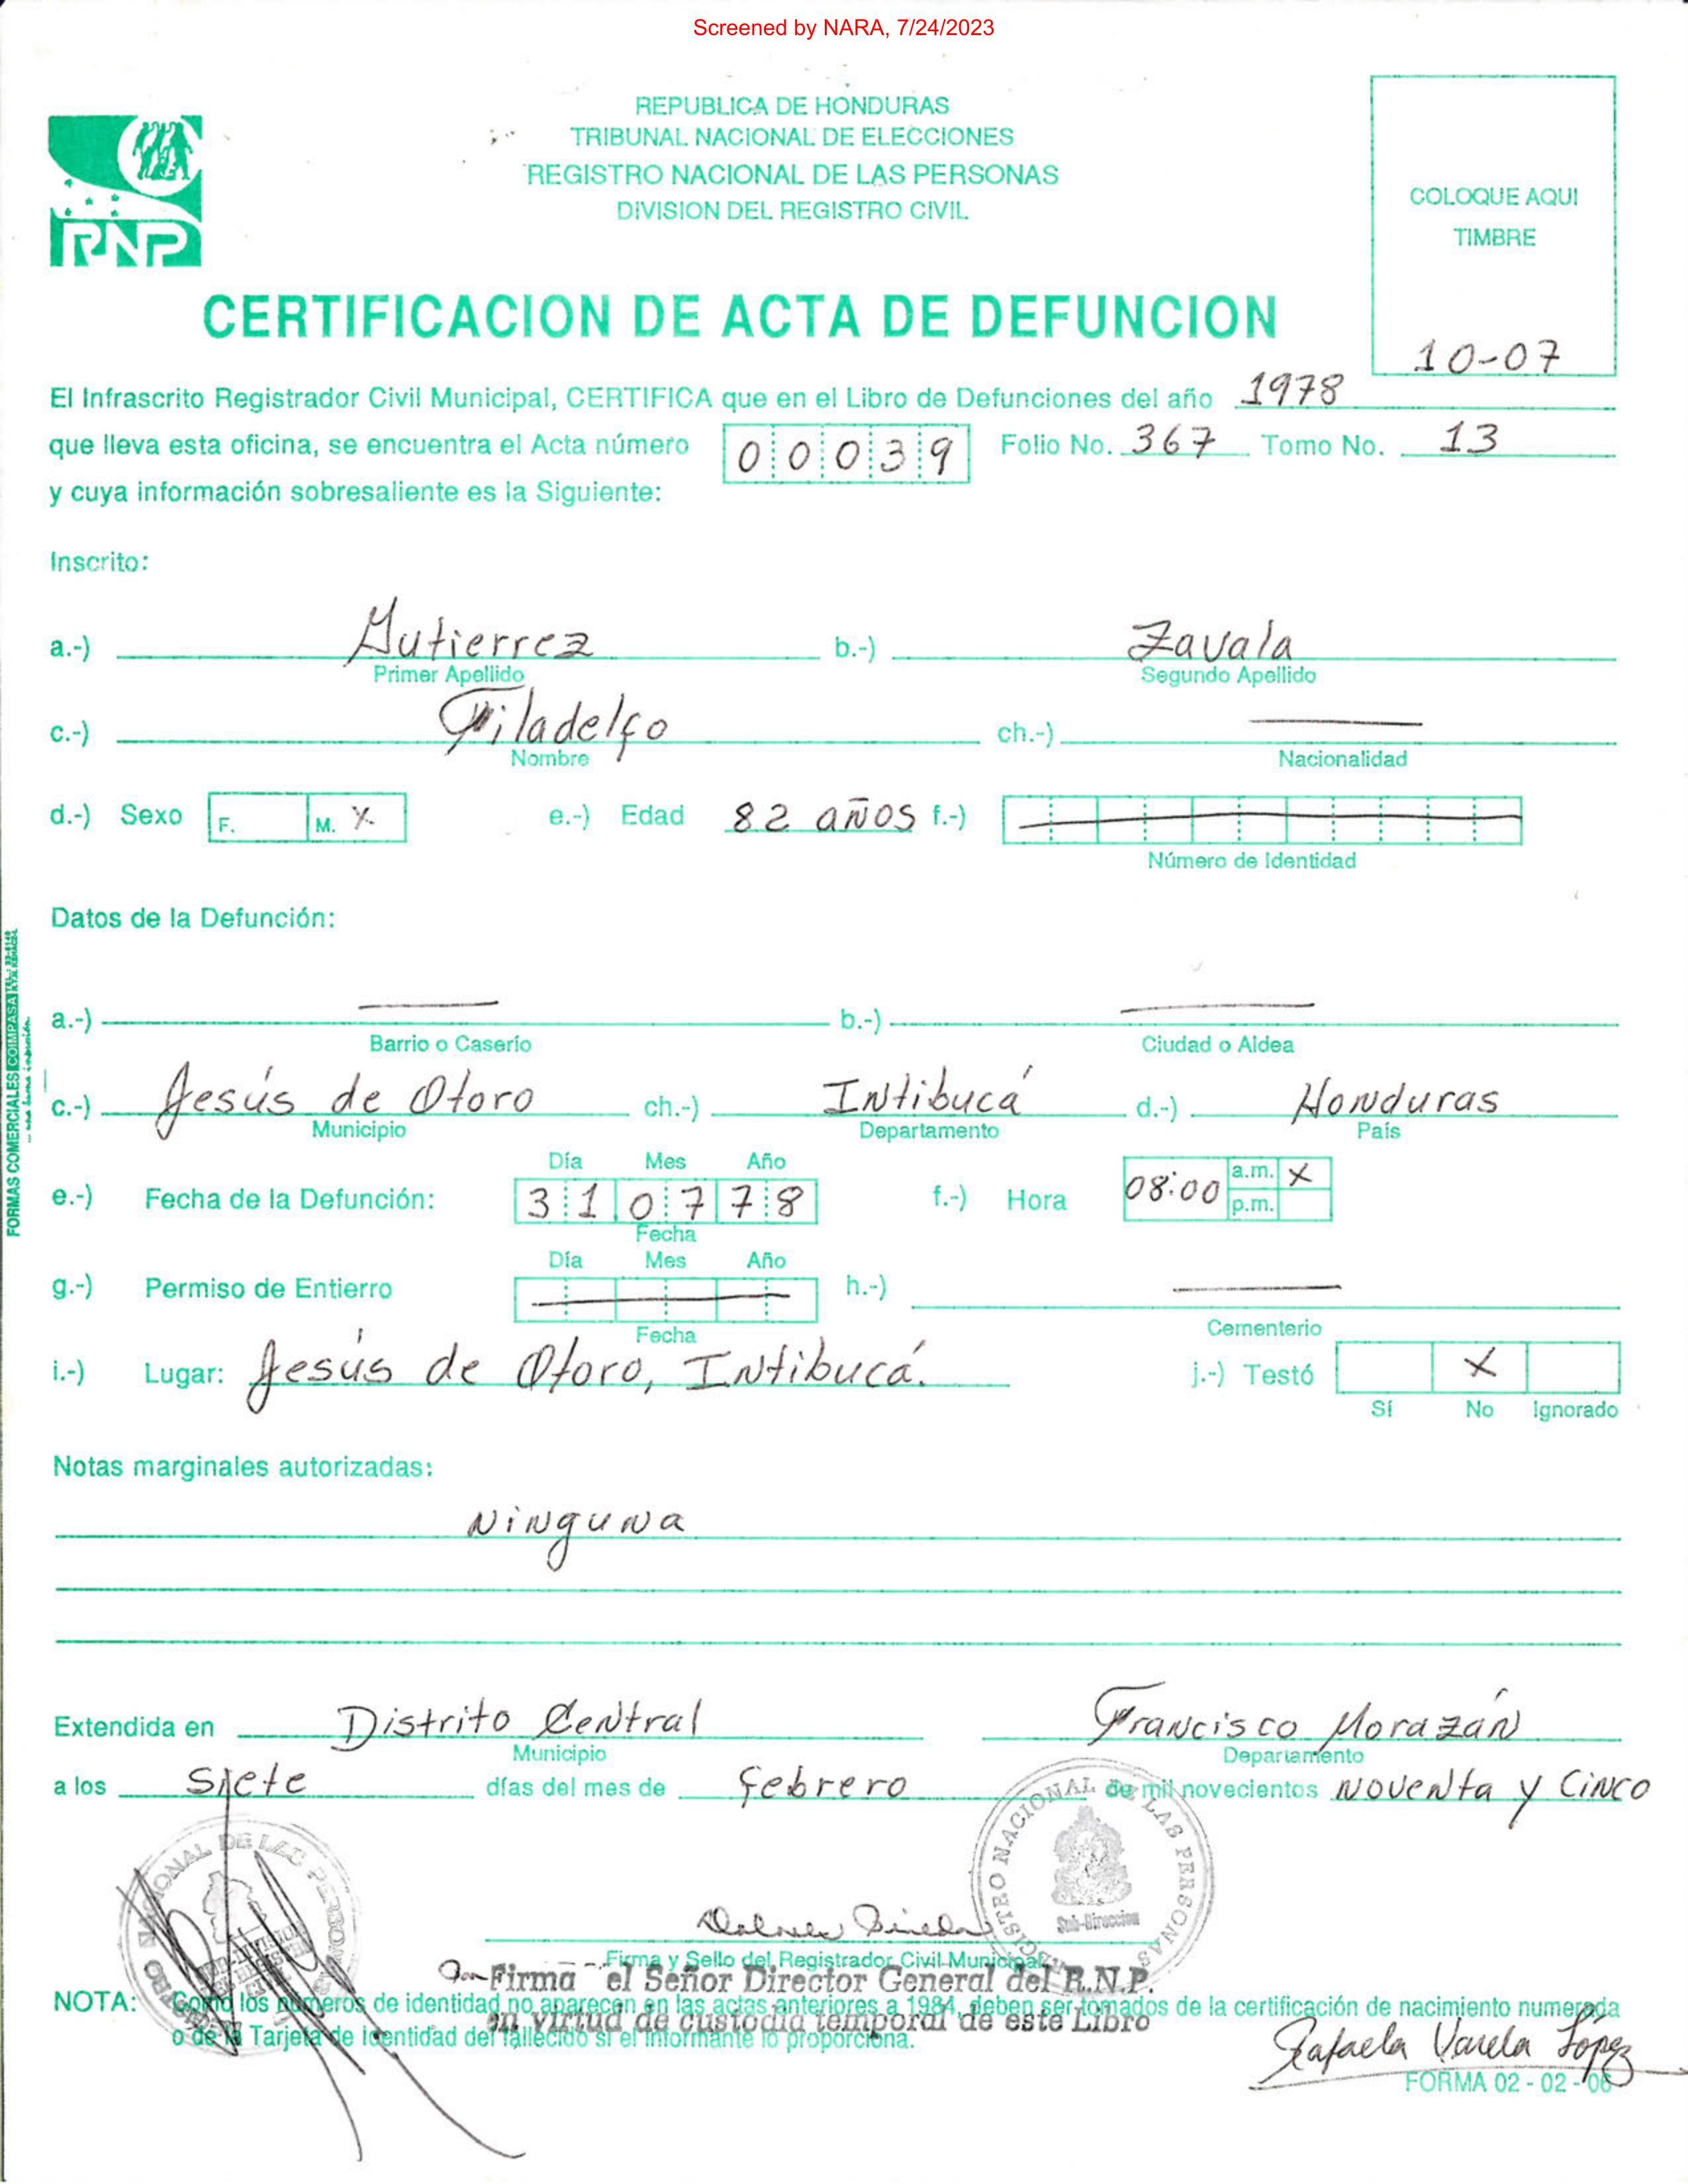 Screened by NARA, 7/24/2023
REPUBLICA DE HONDURAS
TRIBUNAL NACIONAL DE ELECCIONES
REGISTRO NACIONAL DE LAS PERSONAS
DIVISION DEL REGISTRO CIVIL
RNP
COLOQUE AQUI
TIMBRE
10-07
CERTIFICACION DE ACTA DE DEFUNCION
El Infrascrito Registrador Civil Municipal, CERTIFICA que en el Libro de Defunciones del año 1978
que lleva esta oficina, se encuentra el Acta número 00039 Folio No. 367 Tomo No. 13
y cuya información sobresaliente es la Siguiente:
Inscrito:
a.-) Gutierrez b.-) Zavala
Primer Apellido Segundo Apellido
c.-) Filadelfo ch.-) —
Nombre Nacionalidad
d.-) Sexo F. M. X e.-) Edad 82 años f.-)
Número de Identidad
Datos de la Defunción:
a.-) — b.-) —
Barrio o Caserío Ciudad o Aldea
c.-) Jesús de Otoro ch.-) Intibucá d.-) Honduras
Municipio Departamento País
Día Mes Año
e.-) Fecha de la Defunción: 31 07 78 f.-) Hora 08:00 a.m. X p.m.
Fecha
Día Mes Año
g.-) Permiso de Entierro — h.-) —
Fecha Cementerio
i.-) Lugar: Jesús de Otoro, Intibucá. j.-) Testó X
Sí No Ignorado
Notas marginales autorizadas:
Ninguna
Extendida en Distrito Central Francisco Morazán
Municipio Departamento
a los siete días del mes de febrero de mil novecientos noventa y cinco
REGISTRO NACIONAL DE LAS PERSONAS
Sub-Direccion
NACIONAL DE LAS PERSONAS
Firma y Sello del Registrador Civil Municipal
Firma el Señor Director General del R.N.P.
en virtud de custodia temporal de este Libro
NOTA: Como los números de identidad no aparecen en las actas anteriores a 1984, deben ser tomados de la certificación de nacimiento numerada
o de la Tarjeta de Identidad del fallecido si el informante lo proporciona.
Rafaela Varela López
FORMA 02 - 02 - 06
FORMAS COMERCIALES COIMPASA